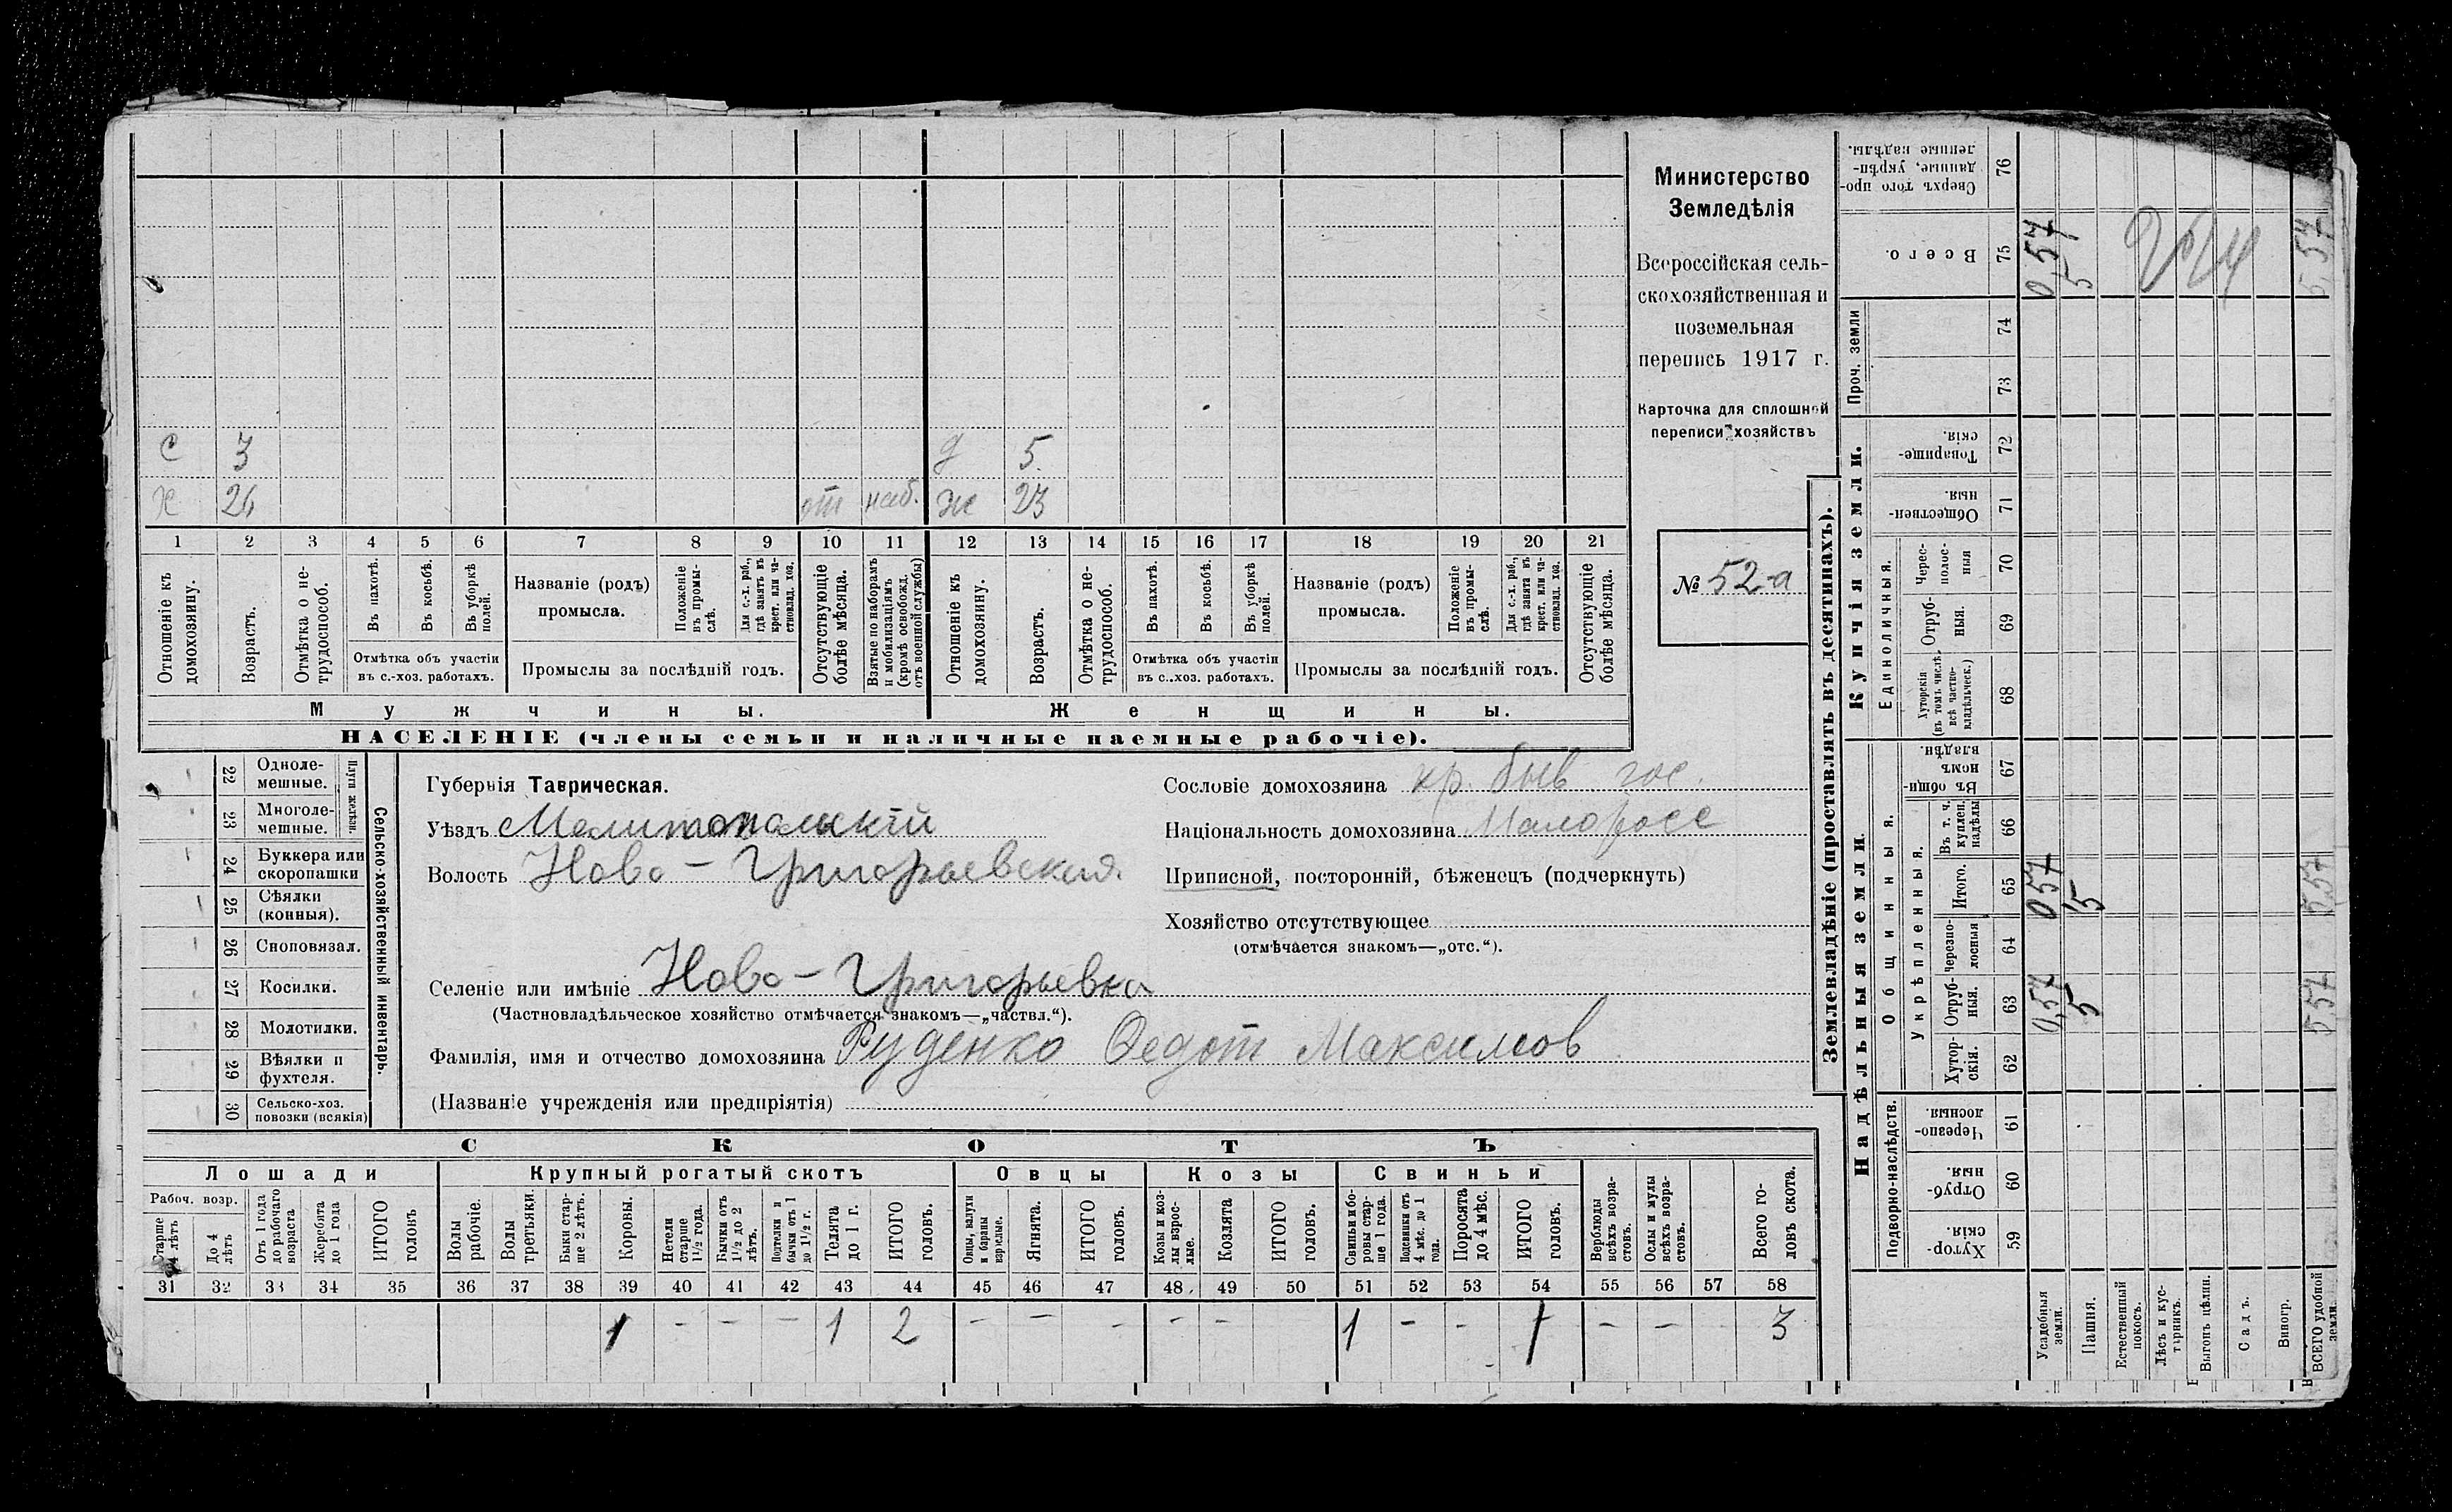 С 3 д 5
Х 24 от наб. ж 23
1 2 3 4 5 6 7 8 9 10 11 12 13 14 15 16 17 18 19 20 21
Отношеніе къ домохозяину.
Возрастъ.
Отмѣтка о не-трудоспособ.
Въ пахотѣ.
Въ косьбѣ.
Въ уборкѣ полей.
Отмѣтка объ участіи
въ с.-хоз. работахъ.
Названіе (родъ)
промысла.
Положеніе въ промы-слѣ.
Для с.-х. раб., гдѣ занятъ въ крест. или ча-стновлад. хоз.
Промыслы за послѣдній годъ.
Отсутствующіе болѣе мѣсяца.
Взятые по наборамъ и мобилизаціямъ (кромѣ освобожд. отъ военной службы)
Отношеніе къ домохозяину.
Возрастъ.
Отмѣтка о не-трудоспособ.
Въ пахотѣ.
Въ косьбѣ.
Въ уборкѣ полей.
Отмѣтка объ участіи
въ с.-хоз. работахъ.
Названіе (родъ)
промысла.
Положеніе въ промы-слѣ.
Для с.-х. раб., гдѣ занята въ крест. или ча-стновлад. хоз.
Промыслы за послѣдній годъ.
Отсутствующіе болѣе мѣсяца.
Мужчины.
Женщины.
НАСЕЛЕНІЕ (члены семьи и наличные наемные рабочіе).
Министерство
Земледѣлія
Всероссійская сель-
скохозяйственная и
поземельная
перепись 1917 г.
Карточка для сплошной
переписи хозяйствъ
№ 52-а
22 Одноле-мешные.
23 Многоле-мешные.
Плуги желѣзн.
24 Буккера или скоропашки
25 Сѣялки (конныя).
26 Сноповязал.
27 Косилки.
28 Молотилки.
29 Вѣялки и фухтеля.
30 Сельско-хоз. повозки (всякія)
Сельско-хозяйственный инвентарь.
Губернія Таврическая.
Уѣздъ Мелитопольскій
Волость Ново-Григорьевская
Сословіе домохозяина кр. быв. гос.
Національность домохозяина Малоросс
Приписной, посторонній, бѣженецъ (подчеркнуть)
Хозяйство отсутствующее
(отмѣчается знакомъ—„отс.“).
Селеніе или имѣніе Ново-Григорьевка
(Частновладѣльческое хозяйство отмѣчается знакомъ—„частвл.“).
Фамилія, имя и отчество домохозяина Руденко Федот Максимов
(Названіе учрежденія или предпріятія)
СКОТЪ
Лошади
Крупный рогатый скотъ
Овцы
Козы
Свиньи
Рабоч. возр.
Старше 4 лѣтъ
До 4 лѣтъ
Отъ 1 года до рабочаго возраста
Жеребята до 1 года
ИТОГО головъ
Волы рабочіе.
Волы третьяки.
Быки стар-ше 2 лѣтъ.
Коровы.
Нетели старше 1½ года.
Бычки отъ 1½ до 2 лѣтъ.
Подтелки и бычки отъ 1 до 1½ г.
Телята до 1 г.
ИТОГО головъ.
Овцы, валухи и бараны взрослые.
Ягнята.
ИТОГО головъ.
Козы и коз-лы взрос-лые.
Козлята
ИТОГО головъ.
Свиньи и бо-ровы стар-ше 1 года.
Подсвинки отъ 4 мѣс. до 1 года.
Поросята до 4 мѣс.
ИТОГО головъ.
Верблюды всѣхъ возра-стовъ.
Ослы и мулы всѣхъ возра-стовъ.
Всего го-ловъ скота.
31 32 33 34 35 36 37 38 39 40 41 42 43 44 45 46 47 48 49 50 51 52 53 54 55 56 57 58
1 - - - 1 2 - - - - - 1 - - 1 - - 3
Землевладѣніе (проставлять въ десятинахъ).
Купчія земли.
Надѣльныя земли.
Сверхъ того про-данные, укрѣп-ленные надѣлы. 76
Всего. 75 0,57 5 5,57
Проч. земли 74 73
Товарище-скія. 72
Обществен-ныя. 71
Единоличныя.
Черес-полос-ныя 70
Отруб-ныя. 69
Хуторскія (въ томъ числѣ всѣ частно-владѣльческ.) 68
Общинныя.
Въ общин-номъ владѣн. 67
Укрѣпленныя.
Въ т. ч. куплен. надѣлы 66
Итого. 65 0 57 5 5,57
Черезпо-лосныя 64
Отруб-ныя. 63 0,57 5 5,57
Хутор-скія. 62
Подворно-наслѣдств.
Черезпо-лосныя. 61
Отруб-ныя. 60
Хутор-скія. 59
Усадебныя земли.
Пашня.
Естественный покосъ.
Лѣсъ и кус-тарникъ.
Выгонъ цѣлин.
Садъ.
Виногр.
ВСЕГО удобной земли.